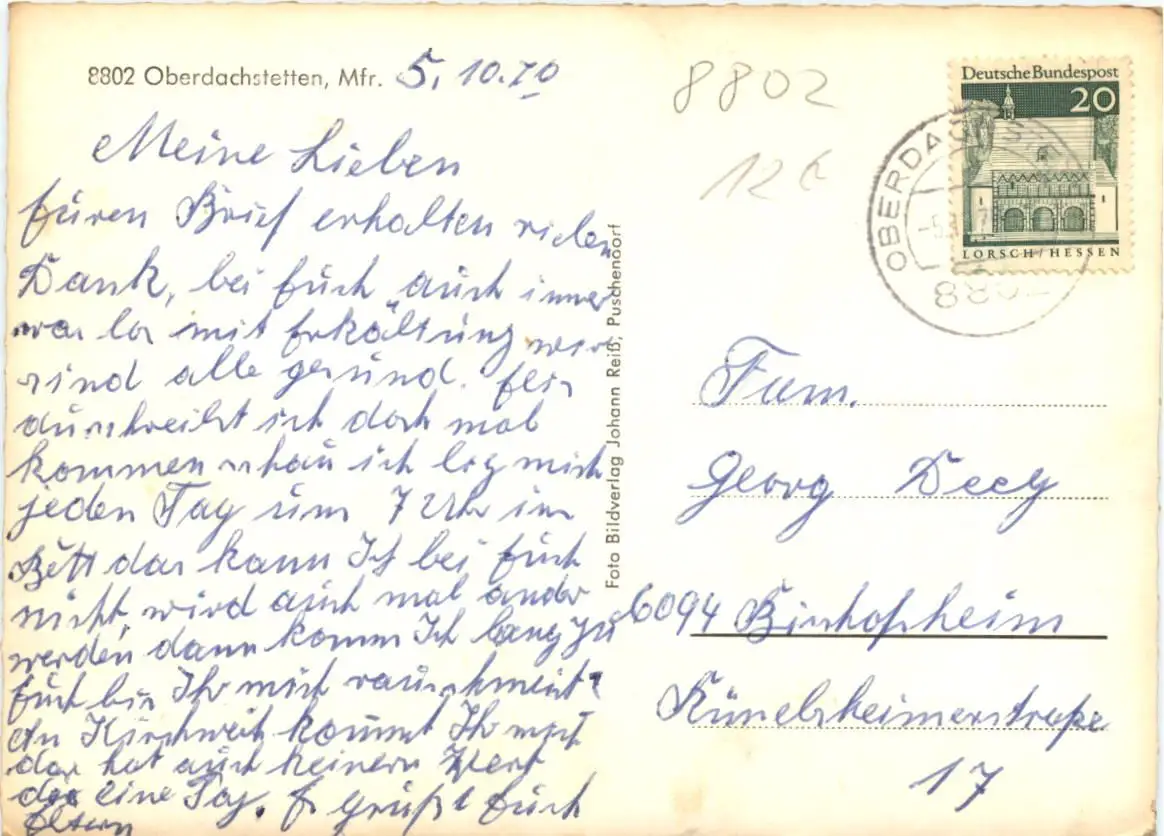 8802 Oberdachstetten, Mfr. 5.10.70
Meine Lieben
Euren Brief erhalten vielen
Dank, bei Euch auch immer
was los mit Erkältung wir
sind alle gesund. Elis
durschreibt ich doch mal
kommen schau ich leg mich
jeden Tag um 7 Uhr ins
Bett das kann Ich bei Euch
nicht, wird auch mal anders
werden dann komm Ich lang zu
Euch bis Ihr mich rausschmeist
An Kirchweih kommt Ihr nicht
das hat auch keinern Wert
die eine Tag. Es grüßt Euch
Eltern
Foto Bildverlag Johann Reiß, Puschendorf
8802
12 €
Deutsche Bundespost
20
LORSCH/HESSEN
OBERDACHSTE
8802
Fam.
Georg Deeg
6094 Bischofsheim
Rünelsheimerstraße
17